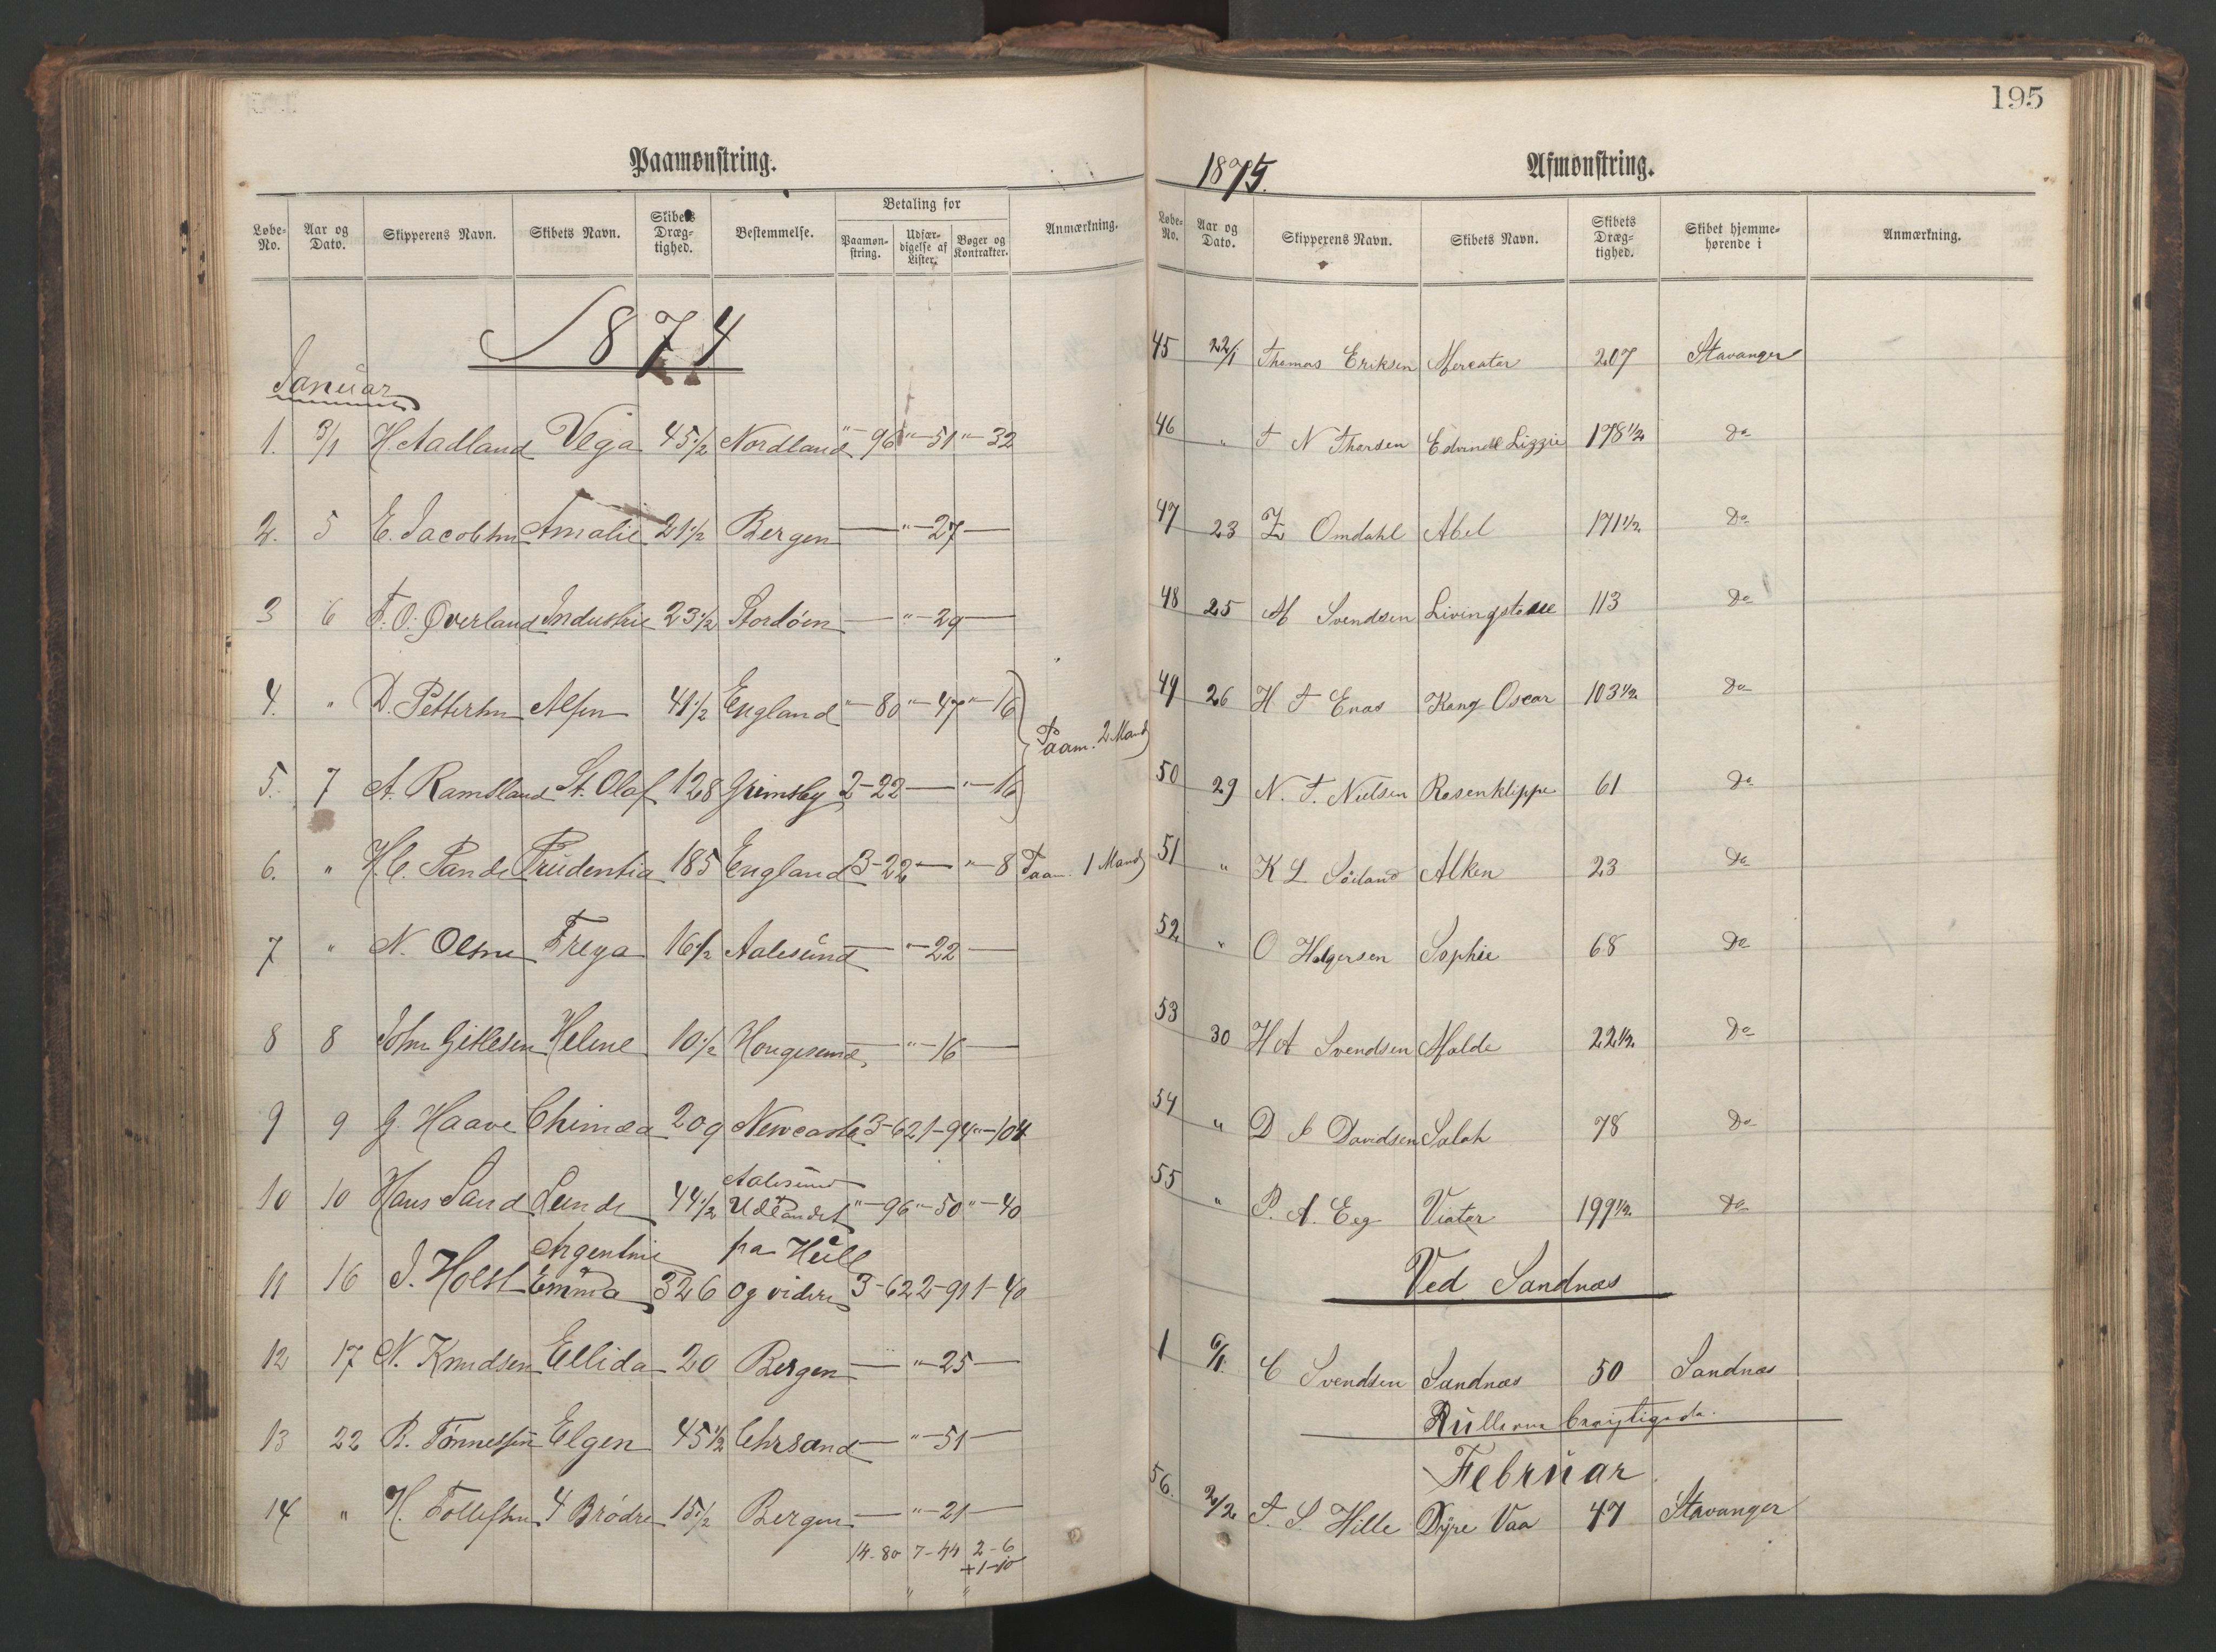 Paamønstring.
Løbe-No. Aar og Dato. Skipperens Navn. Skibets Navn. Skibets Dræg-tighed. Bestemmelse. Betaling for Paamøn-string. Udfær-digelse af Lister. Bøger og Kontrakter. Anmærkning.
1874
Januar
1. 3/1 H. Aadland Vega 45 1/2 Nordland "-96 "-51 "-32
2. 5 E. Jacobsen Amalie 21 1/2 Bergen — "-27 —
3 6 T. O. Qverland Industrie 23 1/2 Stordöen — "-29 —
4. " D. Pettersen Alfen 41 1/2 England "-80 "-47 "-16
Paam. 2 Mand
5. 7 A. Ramsland St. Olaf 128 Grimsby 2-22 — "-16
6. " H. C. Sande Prudentia 185 England 3-22 — "-8 Paam. 1 Mand
7 " N. Olsen Freya 16 1/2 Aalesund — "-22 —
8 8 John Gitlesen Helene 10 1/2 Hougesund — "-16 —
9 9 G. Haave Chimæa 209 Newcastle 3-62 1-94 "-104
10 10 Hans Sand Lunde 44 1/2 Aalesund Udlandet "-96 "-50 "-40
11 16 J. Holst Argentine Emma 326 fra Hull og videre 3-62 2-91 1-40
12 17 N. Knudsen Ellida 20 Bergen — "-25 —
13 22 B. Tönnessen Elgen 45 1/2 Chrsand — "-51 —
14 " H. Tollefsen 4 Brödre 15 1/2 Bergen — "-21 —
14-80 7-44 2-6
+1-10
" "
195
1875.
Afmønstring.
Løbe-No. Aar og Dato. Skipperens Navn. Skibets Navn. Skibets Dræg-tighed. Skibet hjemme-hørende i Anmærkning.
45 22/1 Thomas Eriksen Mercator 207 Stavanger
46 " T N Thorsen Edvind Lizzie 178 1/2 Do
47 23 Z Omdahl Abel 171 1/2 Do
48 25 M Svendsen Livingstone 113 Do
49 26 H T Enas Kong Oscar 103 1/2 Do
50 29 N. T. Nielsen Rosenklippe 61 Do
51 " K L Söiland Alken 23 Do
52 " O Helgersen Sophie 68 Do
53 30 H A Svendsen Molde 22 1/2 Do
54 " D S Davidsen Salah 78 Do
55 " P. A. Eeg Viator 199 1/2 Do
Ved Sandnæs
1 6/1. C Svendsen Sandnæs 50 Sandnæs
Rullerne
Februar
56. 2/2 T. S. Hille Dyre Vaa 47 Stavanger